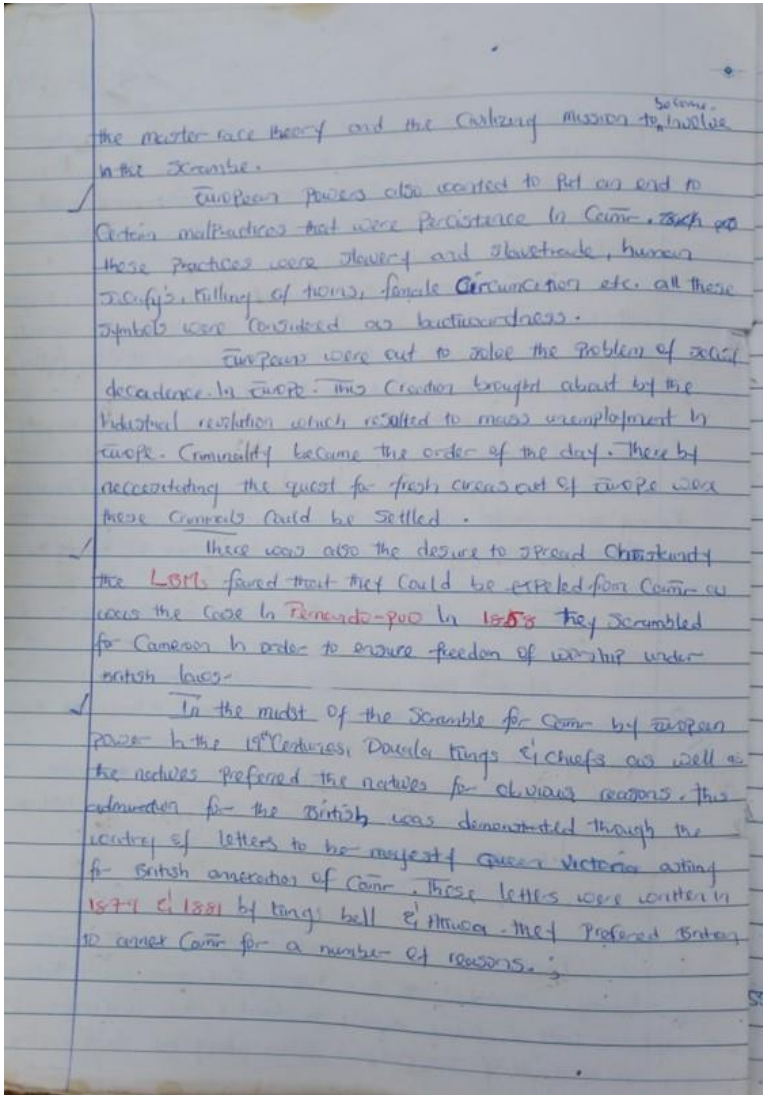 become
the master race theory and the Civilizing mission to involve
in the Scrambe.
European Powers also wanted to Put an end to
Certain malPractices that were Percistence In Camr. Such
these Practices were slavery and slavetrade, human
killing of twins, female Circumcition etc. all these
symbols were Considered as backwardness.
Europeans were out to solve the Problem of social
decadence. In Europe. This Creation brought about by the
Industrial revolution which resulted to mass unemployment in
Europe. Criminality became the order of the day. There by
neccecitating the quest for fresh areas out of Europe were
these Criminals Could be Settled.
There was also the desire to spread Christianity
the LBMs feared that they Could be expeled from Camr as
was the Case In Fernando-poo In 1858 they scrambled
for Cameroon in order to ensure freedom of worship under
British laws-
In the midst of the Scramble for Camr by European
Power In the 19th Centuries, Douala kings & chiefs as well as
the natives preferred the natives for obvious reasons. this
admiration for the British was demonstrated through the
writing of letters to her majesty Queen Victoria asking
for British annexation of Camr. These letters were written in
1879 & 1881 by kings bell & Akwa. they Prefered Britain
to annex Camr for a number of reasons.;